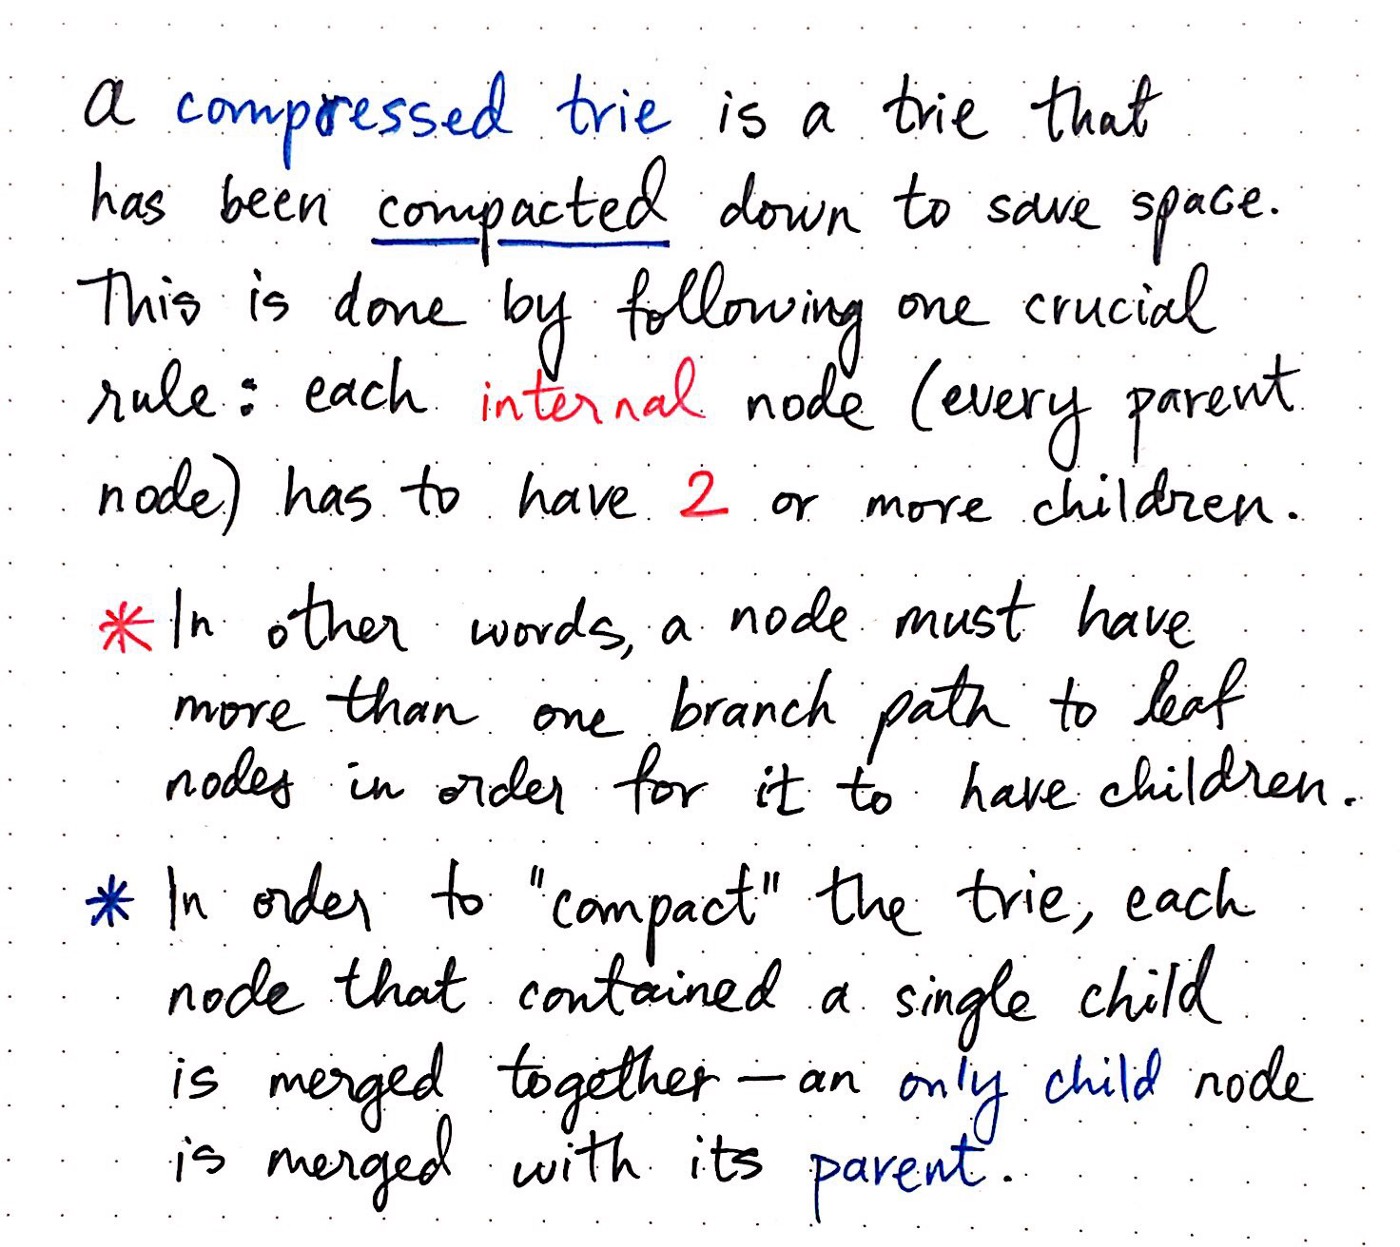 a compressed trie is a trie that
has been compacted down to save space.
This is done by following one crucial
rule: each internal node (every parent
node) has to have 2 or more children.
* In other words, a node must have
more than one branch path to leaf
nodes in order for it to have children.
* In order to "compact" the trie, each
node that contained a single child
is merged together — an only child node
is merged with its parent.